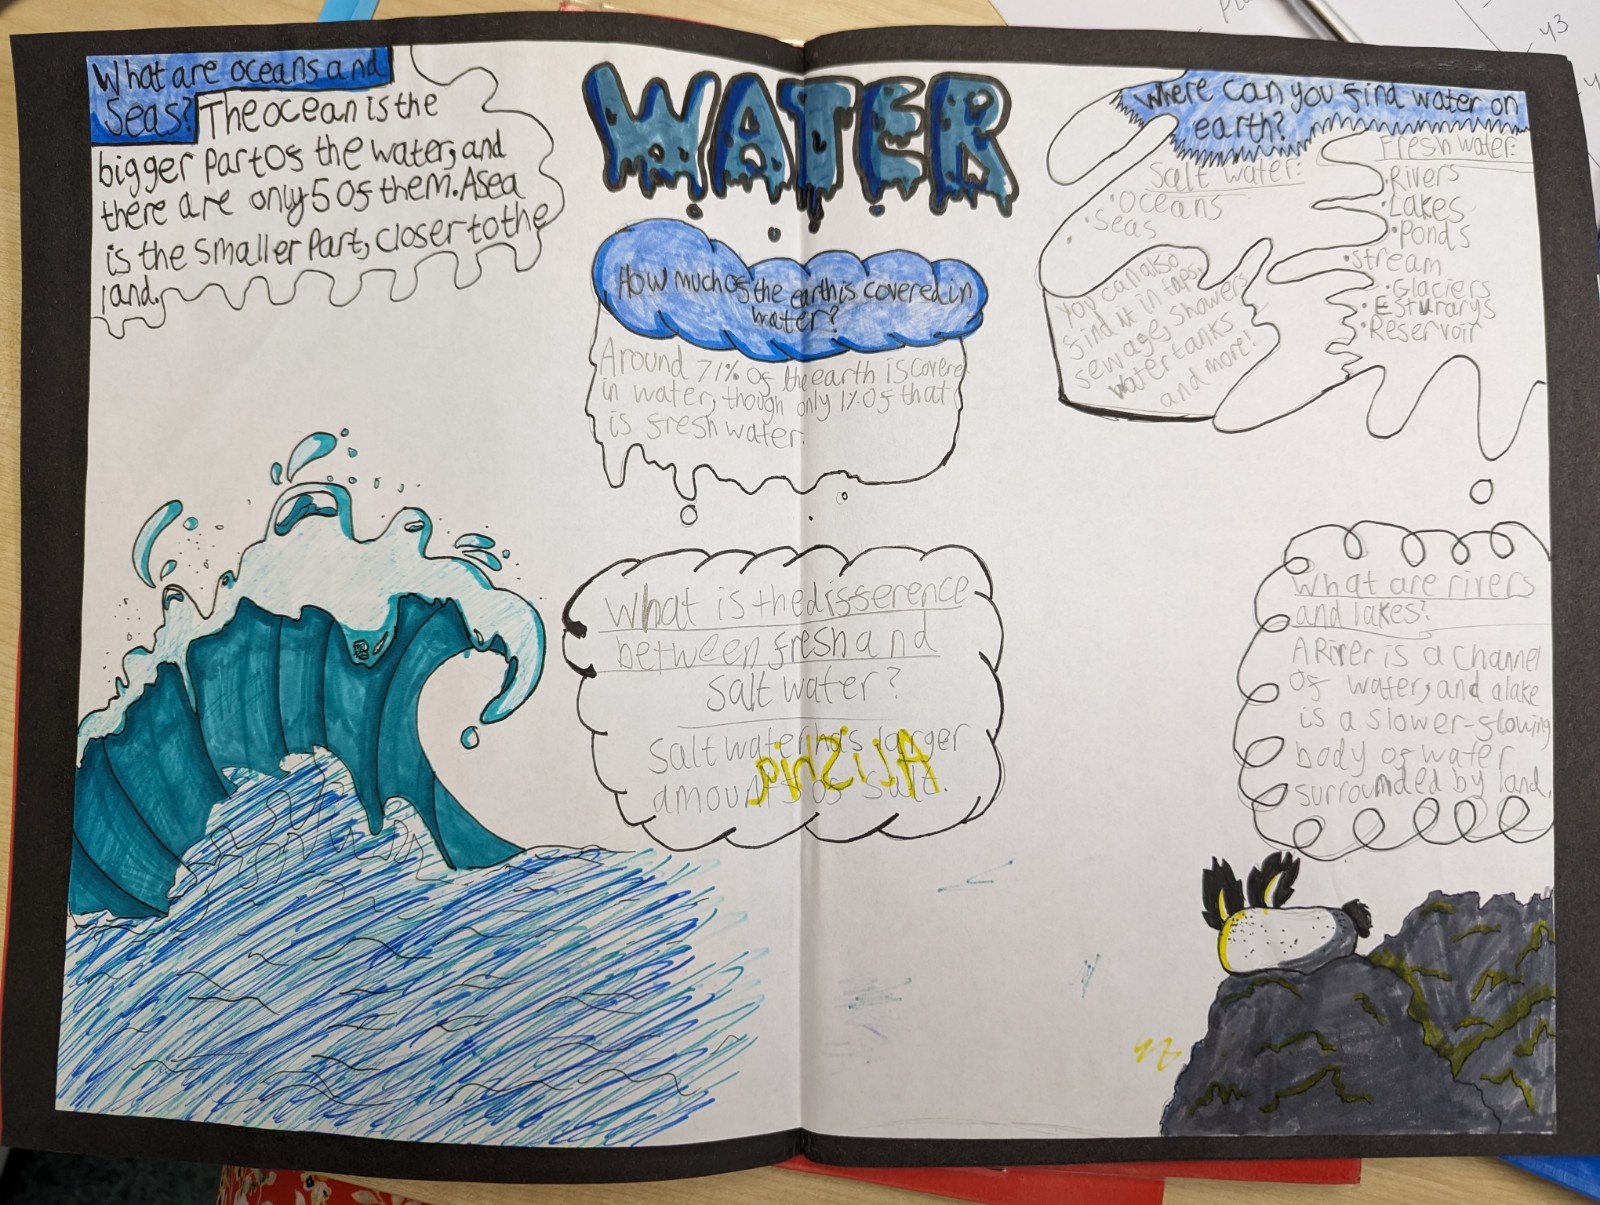 WATER
What are oceans and
Seas? The ocean is the
bigger part of the water, and
there are only 5 of them. A sea
is the smaller part, closer to the
land.
How much of the earth is covered in
water?
Around 71% of the earth is covered
in water, though only 1% of that
is fresh water.
What is the difference
between fresh and
salt water?
Salt water has larger
amounts of salt.
Alishia
Where can you find water on
earth?
Salt water:
• Oceans
• Seas
Fresh water:
• Rivers
• Lakes
• Ponds
• Stream
• Glaciers
• Esturarys
• Reservoir
You can also
find it in taps,
sewage, showers
water tanks
and more!
What are rivers
and lakes?
A River is a channel
of water, and a lake
is a slower-flowing
body of water
surrounded by land.
y3